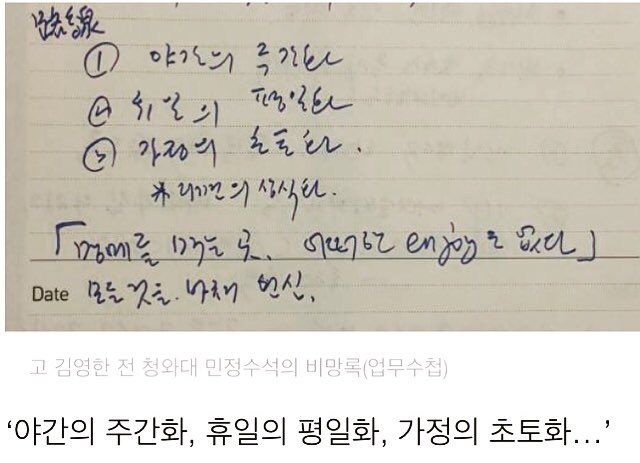 ① 야간의 주간화
② 휴일의 평일화
③ 가정의 초토화.
※ 라면의 상식화.
「명예를 먹는 곳. 어떠한 enjoy도 없다」
Date 모든 것을 바쳐 헌신.
고 김영한 전 청와대 민정수석의 비망록(업무수첩)
‘야간의 주간화, 휴일의 평일화, 가정의 초토화…’